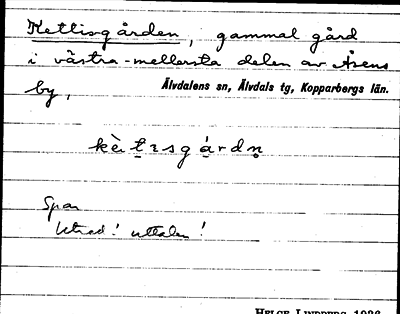 Kettisgården, gammal gård
i västra-mellersta delen av Åsens
by, Älvdalens sn, Älvdals tg, Kopparbergs län.
kè̀ṭɪsgá̤rdn̥
uttalen!
HELGE LINDBERG 1936